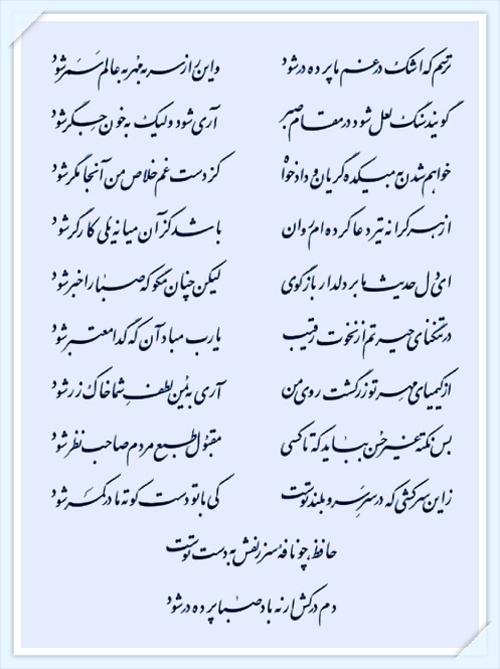 ترسم که اشک در غم ما پرده در شود واین راز سر به مهر به عالم سَمَر شود
گویند سنگ لعل شود در مقام صبر آری شود ولیک به خون جگر شود
خواهم شدن به میکده گریان و دادخواه کز دست غم خلاص من آنجا مگر شود
از هر کرانه تیر دعا کرده ام روان باشد کز آن میانه یکی کارگر شود
ای دل حدیث ما بر دلدار بازگوی لیکن چنان مگو که صبا را خبر شود
در تنگنای حیرتم از نخوت رقیب یارب مباد آن که گدا معتبر شود
از کیمیای مهر تو زر گشت روی من آری به یُمن لطف شما خاک زر شود
بس نکته غیر حسن بباید که تا کسی مقبول طبع مردم صاحب نظر شود
زاین سرکشی که در سَرِ سرو بلند توست کی با تو دست کوته ما در کمر شود
حافظ، چو نافهٔ سر زلفش به دست توست
دم درکش ار نه باد صبا پرده در شود